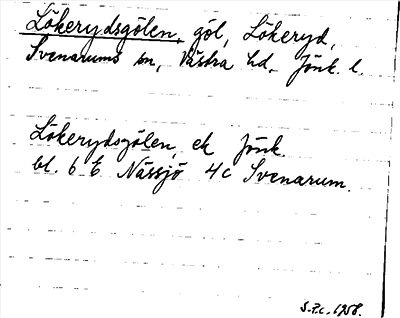 Lökerydsgölen, göl, Lökeryd,
Svenarums sn, Västra hd, Jönk. l.
Lökerydsgölen, ek Jönk.
bl. 6 E Nässjö 4c Svenarum.
S.P.c. 1958.